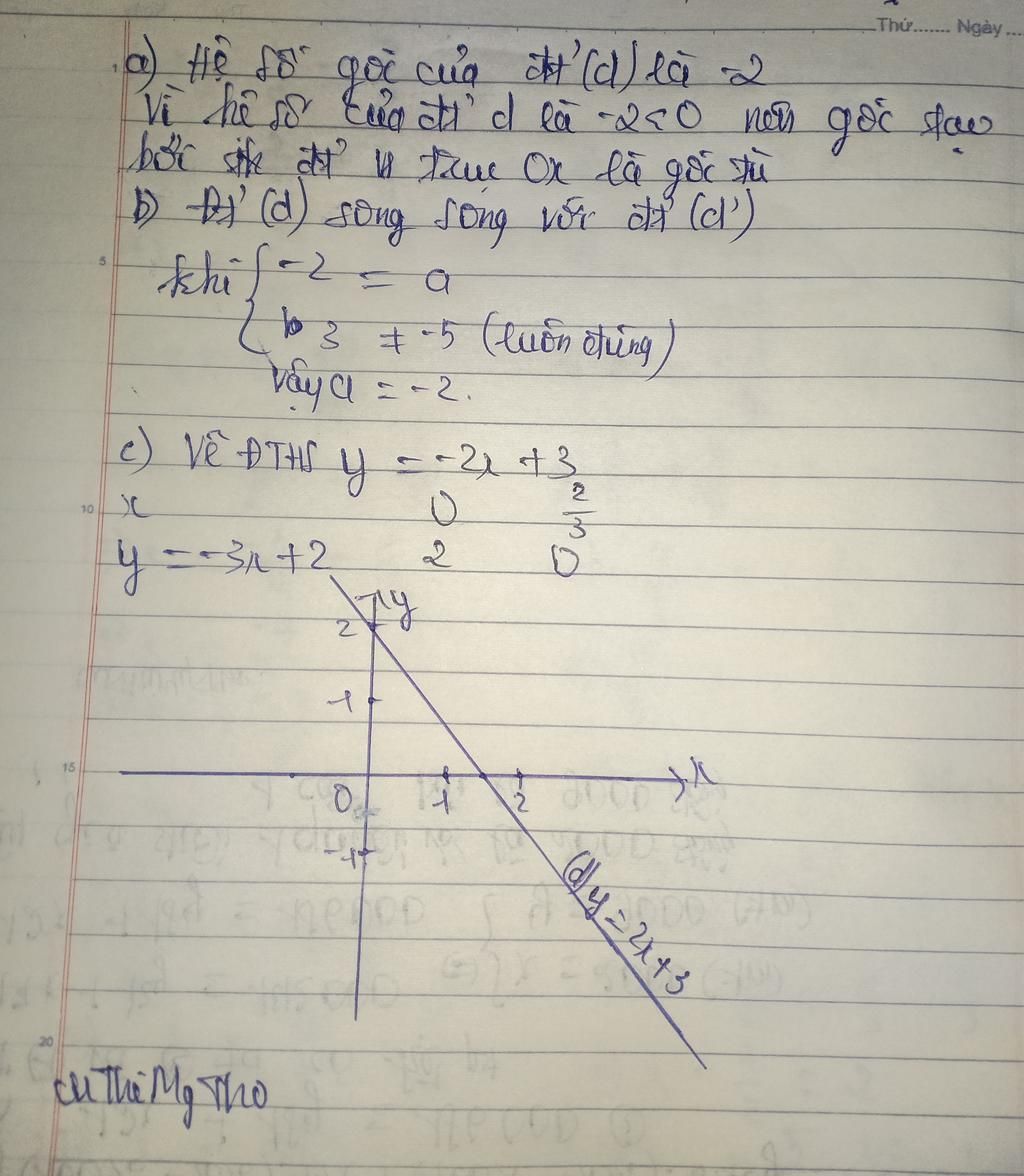 Thứ....... Ngày....
a) Hệ số góc của đt' (d) là -2
Vì hệ số của đt' d là -2<0 nên góc tạo
bởi đt' và trục Ox là góc tù
b) Đt' (d) song song với đt' (d')
5
khi { -2 = a
3 ≠ -5 (luôn đúng)
Vậy a = -2.
c) Vẽ ĐTHS y = -2x + 3
10
x 0 2/3
y = -3x+2 2 0
y
2
1
15
x
0 1 2
-1
(d) y = 2x+3
20
Thi Mg Tho